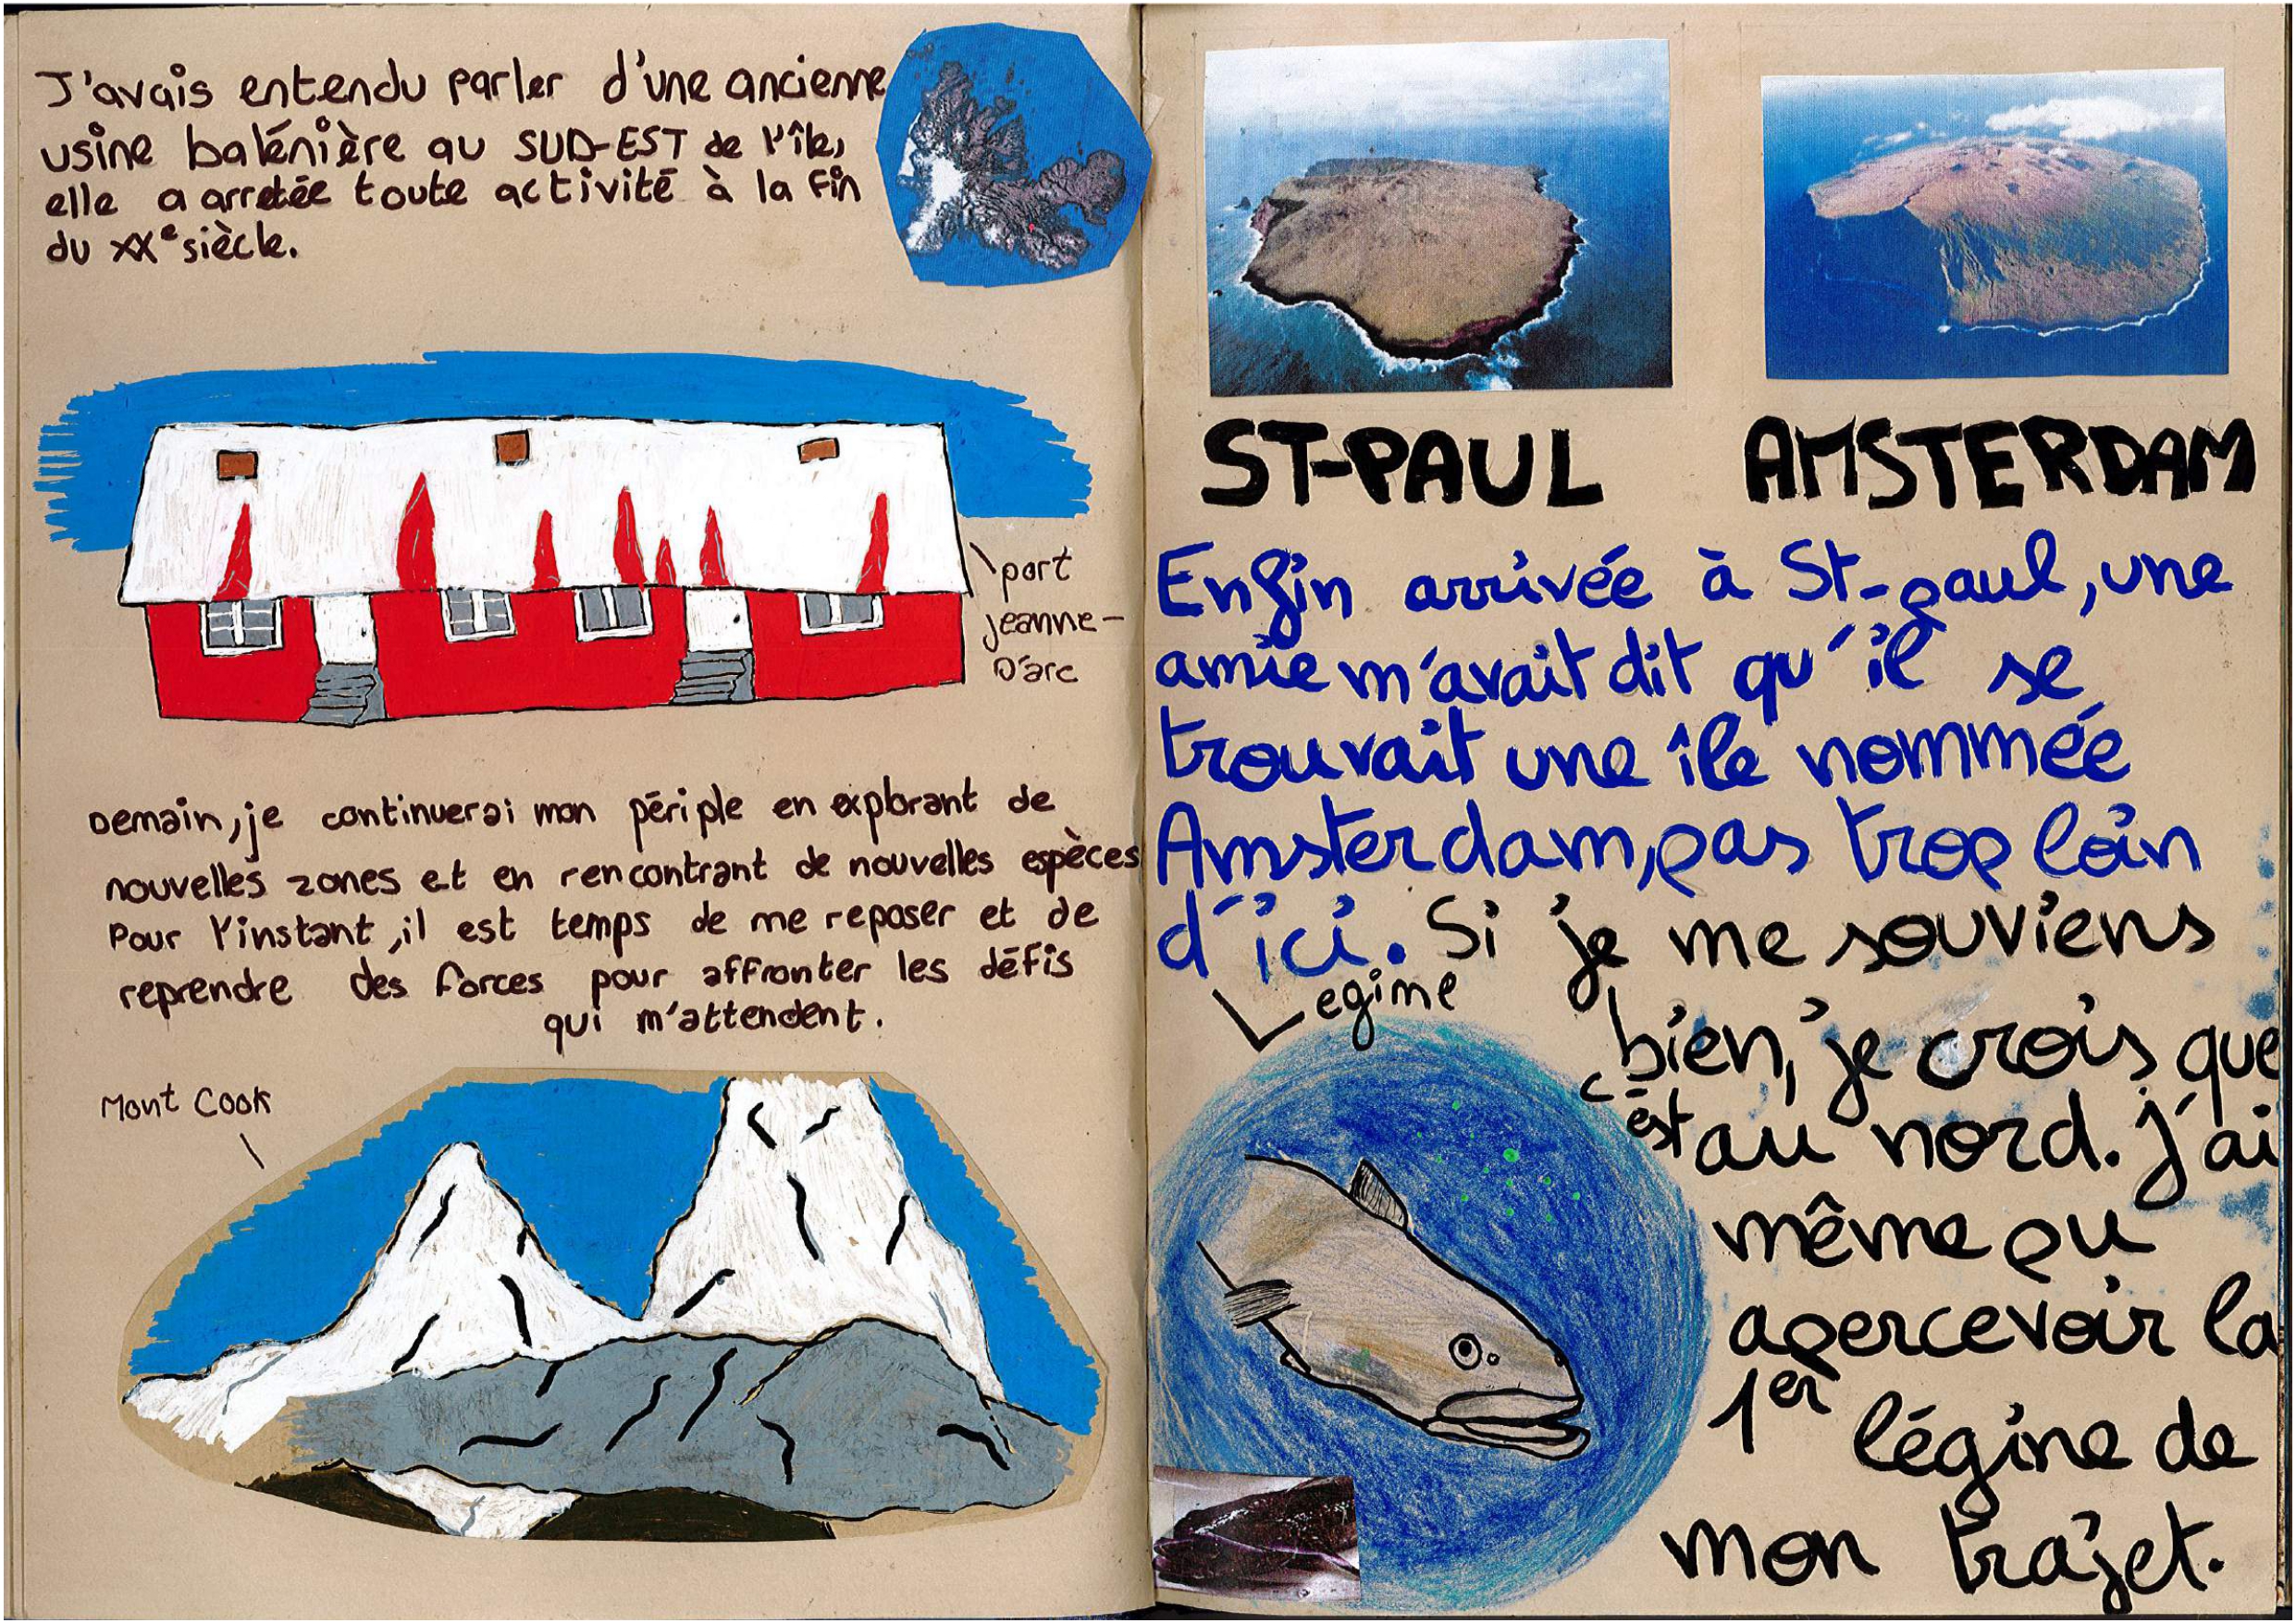 J'avais entendu parler d'une ancienne
usine balénière au SUD-EST de l'île,
elle a arretée toute activité à la fin
du XXe siècle.
port
jeanne-
D'arc
Demain, je continuerai mon périple en explorant de
nouvelles zones et en rencontrant de nouvelles espèces
Pour l'instant, il est temps de me reposer et de
reprendre des forces pour affronter les défis
qui m'attendent.
Mont Cook
ST-PAUL
AMSTERDAM
Enfin arrivée à St-paul, une
amie m'avait dit qu'il se
trouvait une île nommée
Amsterdam, pas trop loin
d'ici. Si je me souviens
bien, je crois que
c'est au nord. j'ai
même pu
apercevoir la
1er légine de
mon trajet.
Legine